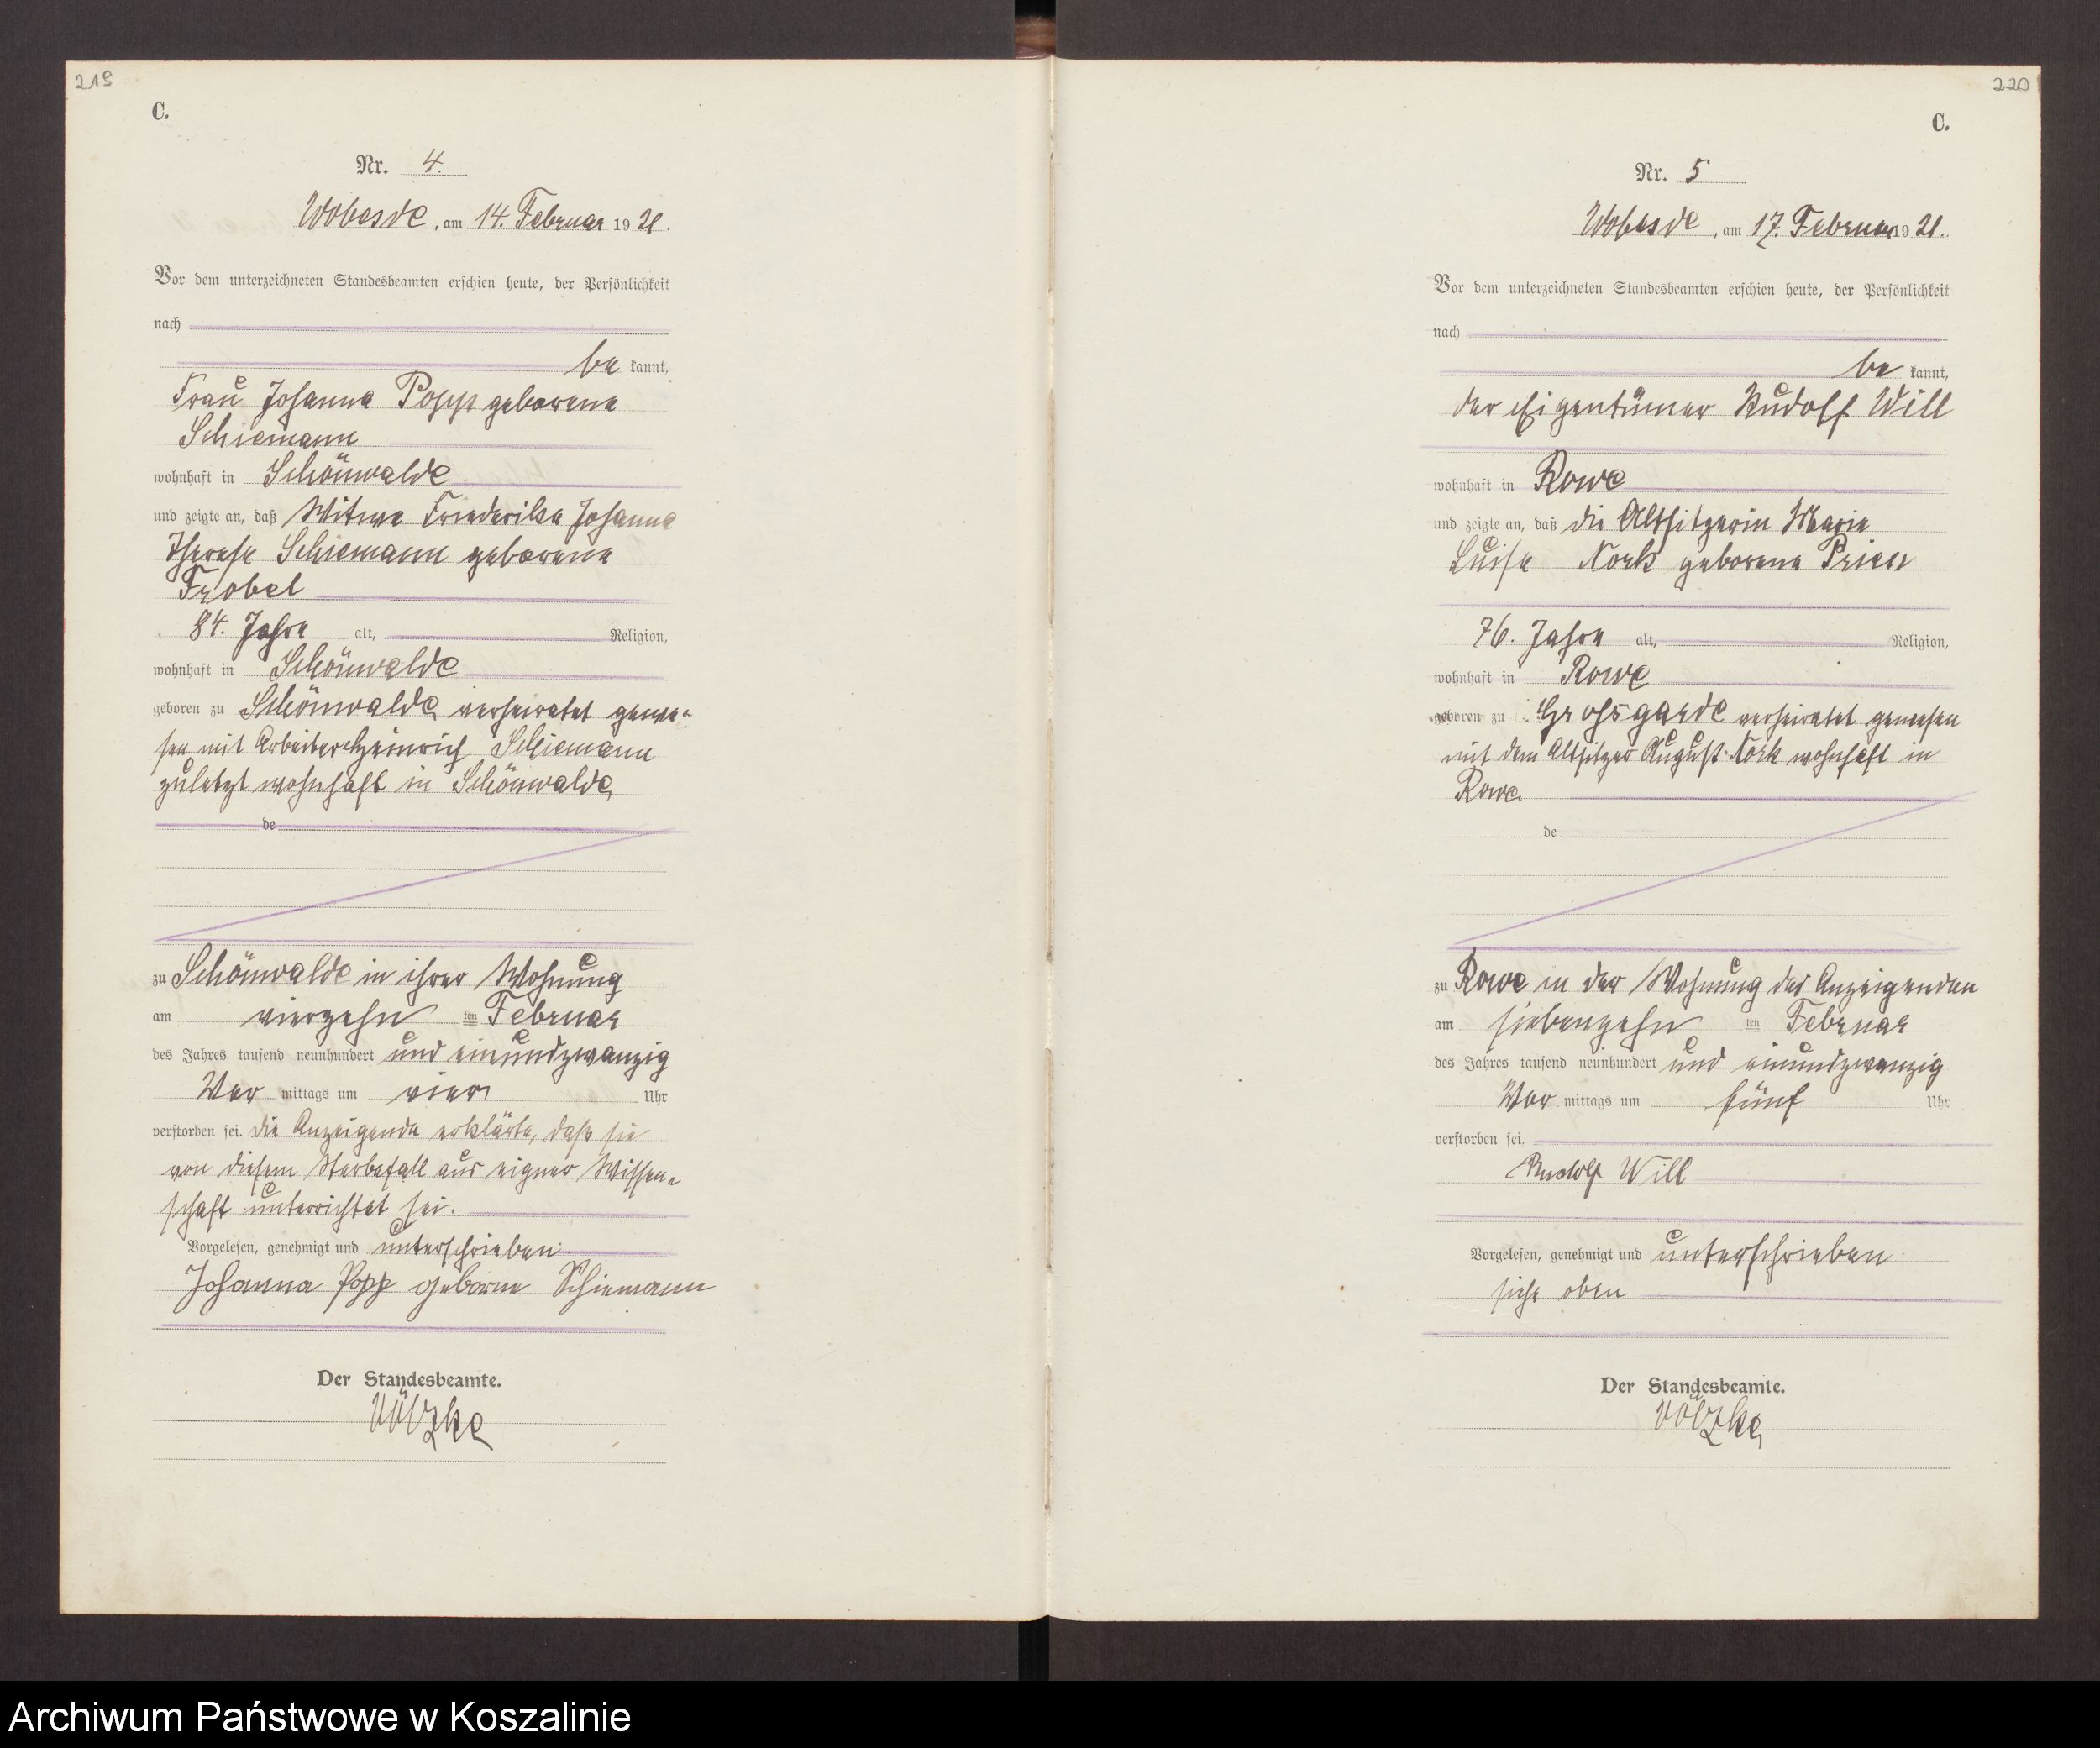 219
C.
Nr. 4.
Wobesde, am 14. Februar 1921.
Vor dem unterzeichneten Standesbeamten erschien heute, der Persönlichkeit
nach
be kannt,
Frau Johanna Popp geborene
Schiemann
wohnhaft in Schönwalde
und zeigte an, daß Witwe Friederike Johanna
Therese Schiemann geborene
84. Jahre alt, Religion,
wohnhaft in Schönwalde
geboren zu Schönwalde, verheiratet gewe-
sen mit Arbeiter Heinrich Schiemann
zuletzt wohnhaft in Schönwalde,
de
zu Schönwalde in ihrer Wohnung
am vierzehn ten Februar
des Jahres tausend neunhundert und einundzwanzig
Vor mittags um vier Uhr
verstorben sei. Die Anzeigende erklärte, daß sie
von diesem Sterbefall aus eigner Wissen-
schaft unterrichtet sei.
Vorgelesen, genehmigt und unterschrieben
Johanna Popp geborne Schiemann
Der Standesbeamte.
Völzke
220
C.
Nr. 5
Wobesde, am 17. Februar 1921.
Vor dem unterzeichneten Standesbeamten erschien heute, der Persönlichkeit
nach
be kannt,
der Eigentümer Rudolf Will
wohnhaft in Rowe
und zeigte an, daß die Altsitzerin Marie
Luise Nork geborene Prien
76. Jahre alt, Religion,
wohnhaft in Rowe
geboren zu Großgarde verheiratet gewesen
mit dem Altsitzer August Nork wohnhaft in
Rowe.
de
zu Rowe in der Wohnung des Anzeigenden
am siebenzehn ten Februar
des Jahres tausend neunhundert und einundzwanzig
Vor mittags um fünf Uhr
verstorben sei.
Rudolf Will
Vorgelesen, genehmigt und unterschrieben
siehe oben
Der Standesbeamte.
Völzke
Archiwum Państwowe w Koszalinie